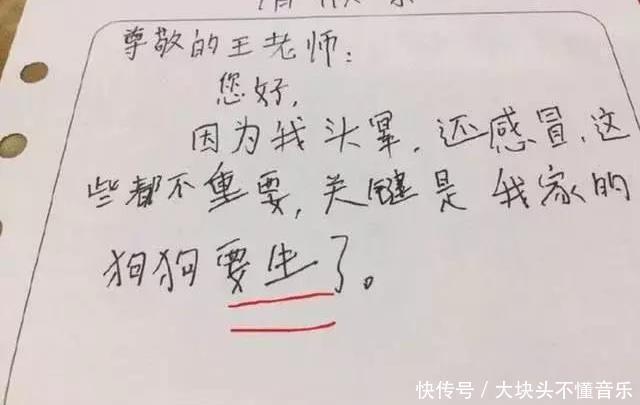 尊敬的王老师:
您好,
因为我头晕,还感冒,这
些都不重要,关键是我家的
狗狗要生了。
快传号/大块头不懂音乐